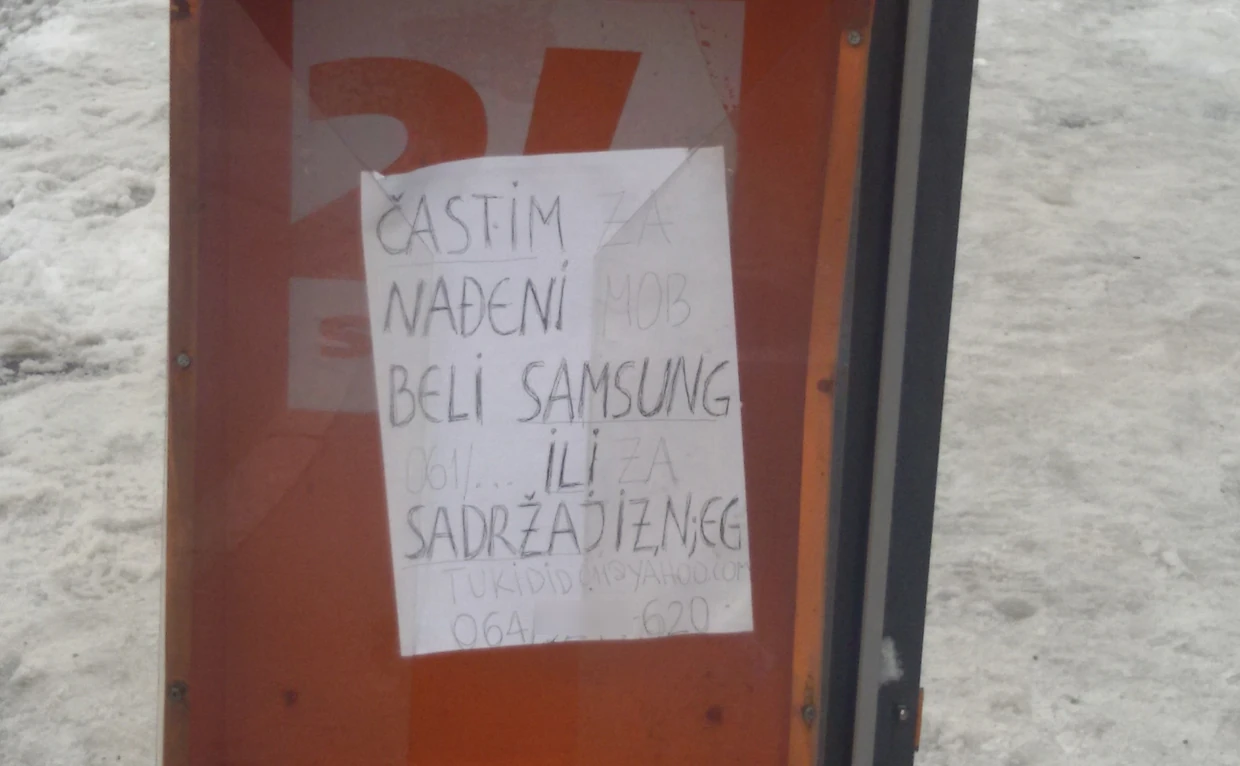 24
ČASTIM ZA
NAĐENI MOB
BELI SAMSUNG
061/... ILI ZA
SADRŽAJ IZ NJEG
@YAHOO.COM
064/ 620